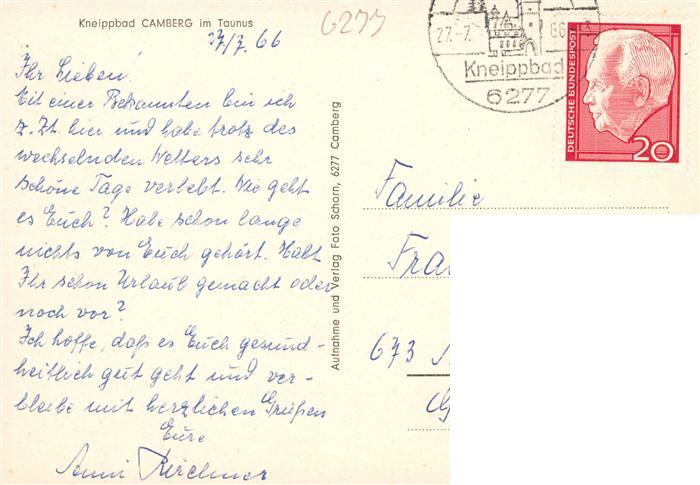 Kneippbad CAMBERG im Taunus
27/7. 66
6277
Ihr Lieben.
Mit einer Bekannten bin ich
z. Zt. hier und habe trotz des
wechselnden Wetters sehr
schöne Tage verlebt. Wie geht
es Euch? Habe schon lange
nichts von Euch gehört. Habt
Ihr schon Urlaub gemacht oder
noch vor?
Ich hoffe, daß es Euch gesund-
heitlich gut geht und ver-
bleibe mit herzlichen Grüßen
Eure
Anni Kirchner
Aufnahme und Verlag Foto Schorn, 6277 Camberg
27.-7.
66
Kneippbad
6277
DEUTSCHE BUNDESPOST
20
Familie
Fra
673